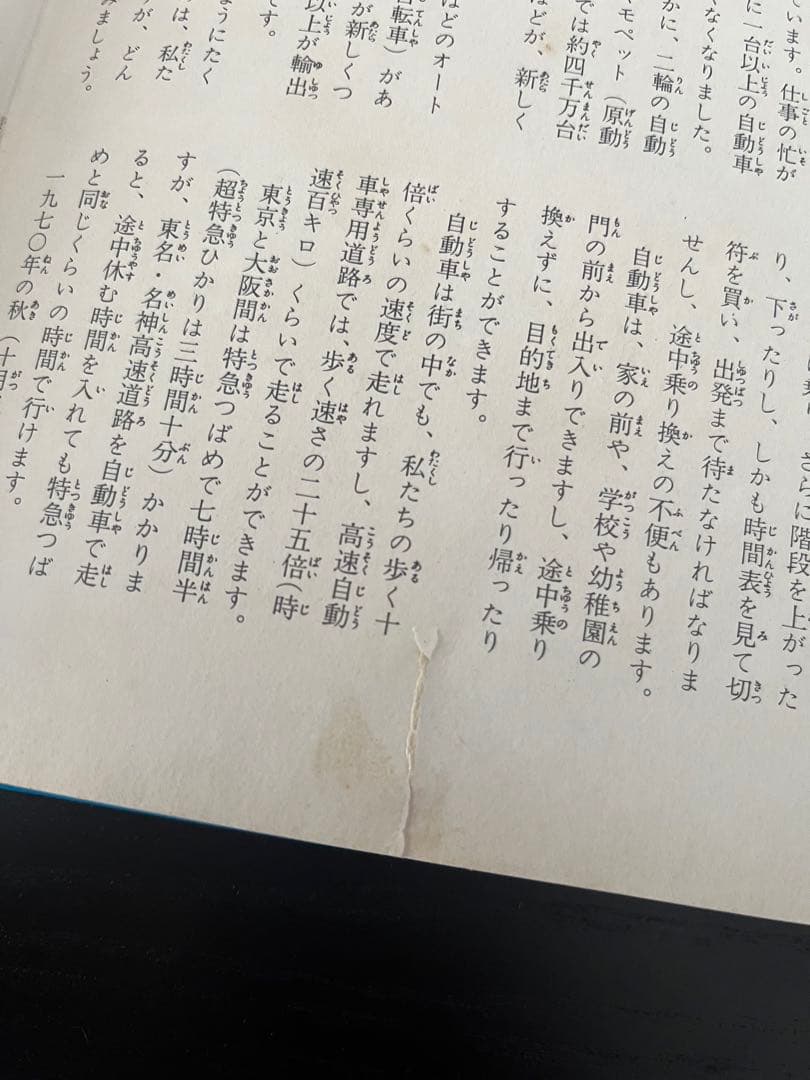 います。仕事の忙が
に一台以上の自動車
なくなりました。
かに、二輪の自動
モペット（原動
では約四千万台
ほどが、新しく
はどのオート
転車）があ
が新しくつ
以上が輸出
です。
ようにたく
は、私た
が、どん
みましょう。
さらに階段を上がった
り、下ったりし、しかも時間表を見て切
符を買い、出発まで待たなければなりま
せんし、途中乗り換えの不便もあります。
自動車は、家の前や、学校や幼稚園の
門の前から出入りできますし、途中乗り
換えずに、目的地まで行ったり帰ったり
することができます。
自動車は街の中でも、私たちの歩く十
倍くらいの速度で走れますし、高速自動
車専用道路では、歩く速さの二十五倍（時
速百キロ）くらいで走ることができます。
東京と大阪間は特急つばめで七時間半
（超特急ひかりは三時間十分）かかりま
すが、東名・名神高速道路を自動車で走
ると、途中休む時間を入れても特急つば
めと同じくらいの時間で行けます。
一九七〇年の秋（十月